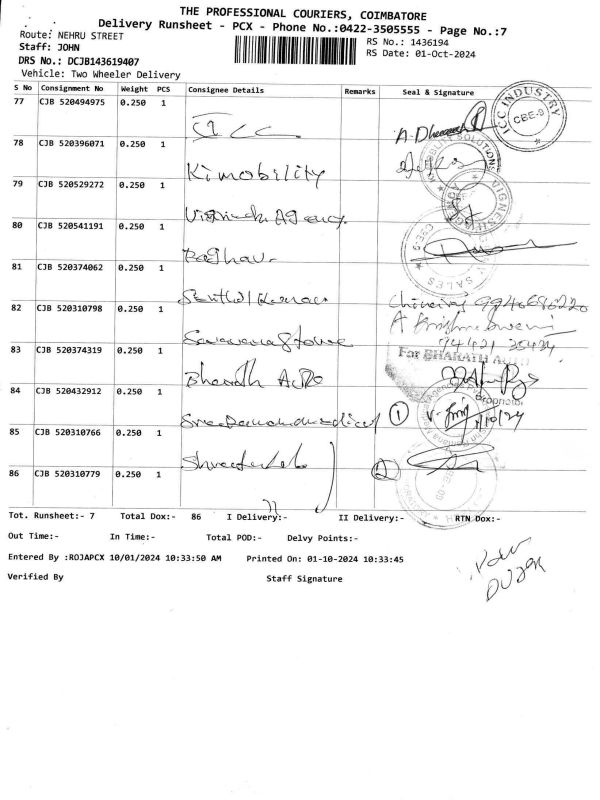 THE PROFESSIONAL COURIERS, COIMBATORE
Delivery Runsheet - PCX - Phone No.:0422-3505555 - Page No.:7
Route: NEHRU STREET
RS No.: 1436194
Staff: JOHN
RS Date: 01-Oct-2024
DRS No.: DCJB143619407
Vehicle: Two Wheeler Delivery
S No Consignment No Weight PCS Consignee Details Remarks Seal & Signature
77 CJB 520494975 0.250 1
ICC INDUSTRY
CBE-9
78 CJB 520396071 0.250 1
Ki mobility
79 CJB 520529272 0.250 1
Agency
80 CJB 520541191 0.250 1
Raghav
CBE-9
SALES
81 CJB 520374062 0.250 1
Senthil Kumar
9940686220
82 CJB 520310798 0.250 1
A Krishna Sweni
Saravana Store
94421
83 CJB 520374319 0.250 1
For BHARATH AUTO
Bharath Auto
Proprietor
84 CJB 520432912 0.250 1
1
1/10/24
85 CJB 520310766 0.250 1
2
86 CJB 520310779 0.250 1
Tot. Runsheet:- 7 Total Dox:- 86 I Delivery:- II Delivery:- RTN Dox:-
Out Time:- In Time:- Total POD:- Delvy Points:-
Entered By :ROJAPCX 10/01/2024 10:33:50 AM Printed On: 01-10-2024 10:33:45
Verified By Staff Signature